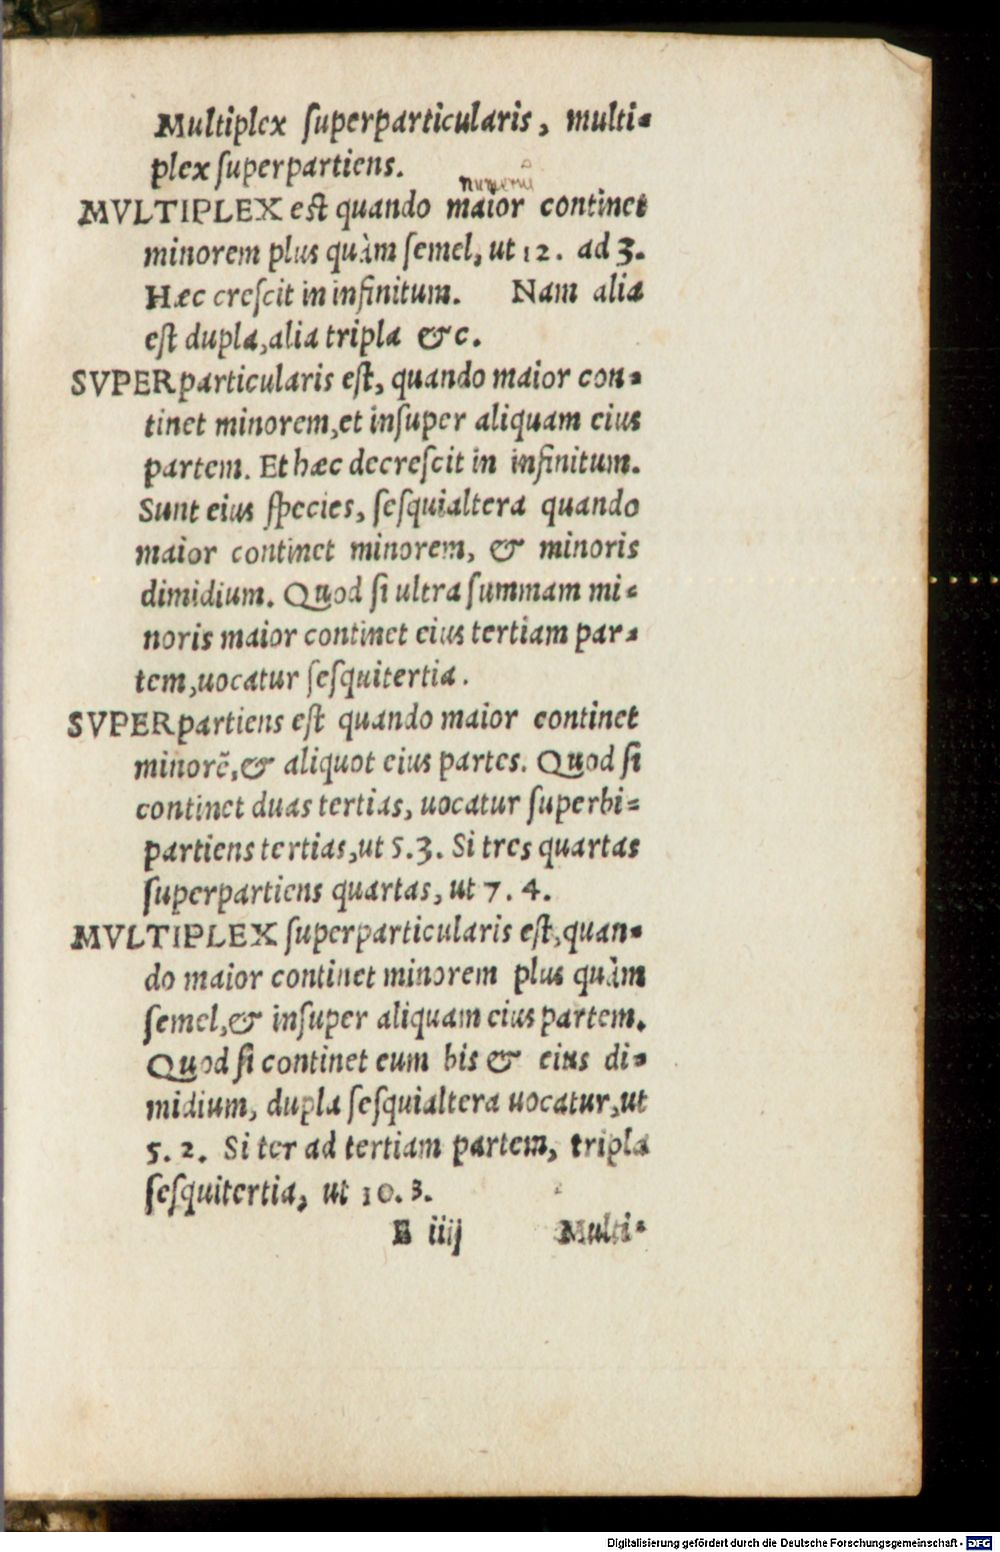 Multiplex ſuperparticularis, multi-
plex ſuperpartiens.
numerus
MVLTIPLEX eſt quando maior continet
minorem plus quàm ſemel, ut 12. ad 3.
Hæc creſcit in infinitum. Nam alia
eſt dupla, alia tripla &c.
SVPERparticularis eſt, quando maior con-
tinet minorem, et inſuper aliquam eius
partem. Et hæc decreſcit in infinitum.
Sunt eius ſpecies, ſeſquialtera quando
maior continet minorem, & minoris
dimidium. Quod ſi ultra ſummam mi-
noris maior continet eius tertiam par-
tem, uocatur ſeſquitertia.
SVPERpartiens eſt quando maior continet
minorẽ, & aliquot eius partes. Quod ſi
continet duas tertias, uocatur ſuperbi-
partiens tertias, ut 5.3. Si tres quartas
ſuperpartiens quartas, ut 7. 4.
MVLTIPLEX ſuperparticularis eſt, quan-
do maior continet minorem plus quàm
ſemel, & inſuper aliquam eius partem.
Quod ſi continet eum bis & eius di-
midium, dupla ſeſquialtera uocatur, ut
5. 2. Si ter ad tertiam partem, tripla
ſeſquitertia, ut 10. 3.
B iiij Multi-
Digitalisierung gefördert durch die Deutsche Forschungsgemeinschaft - DFG